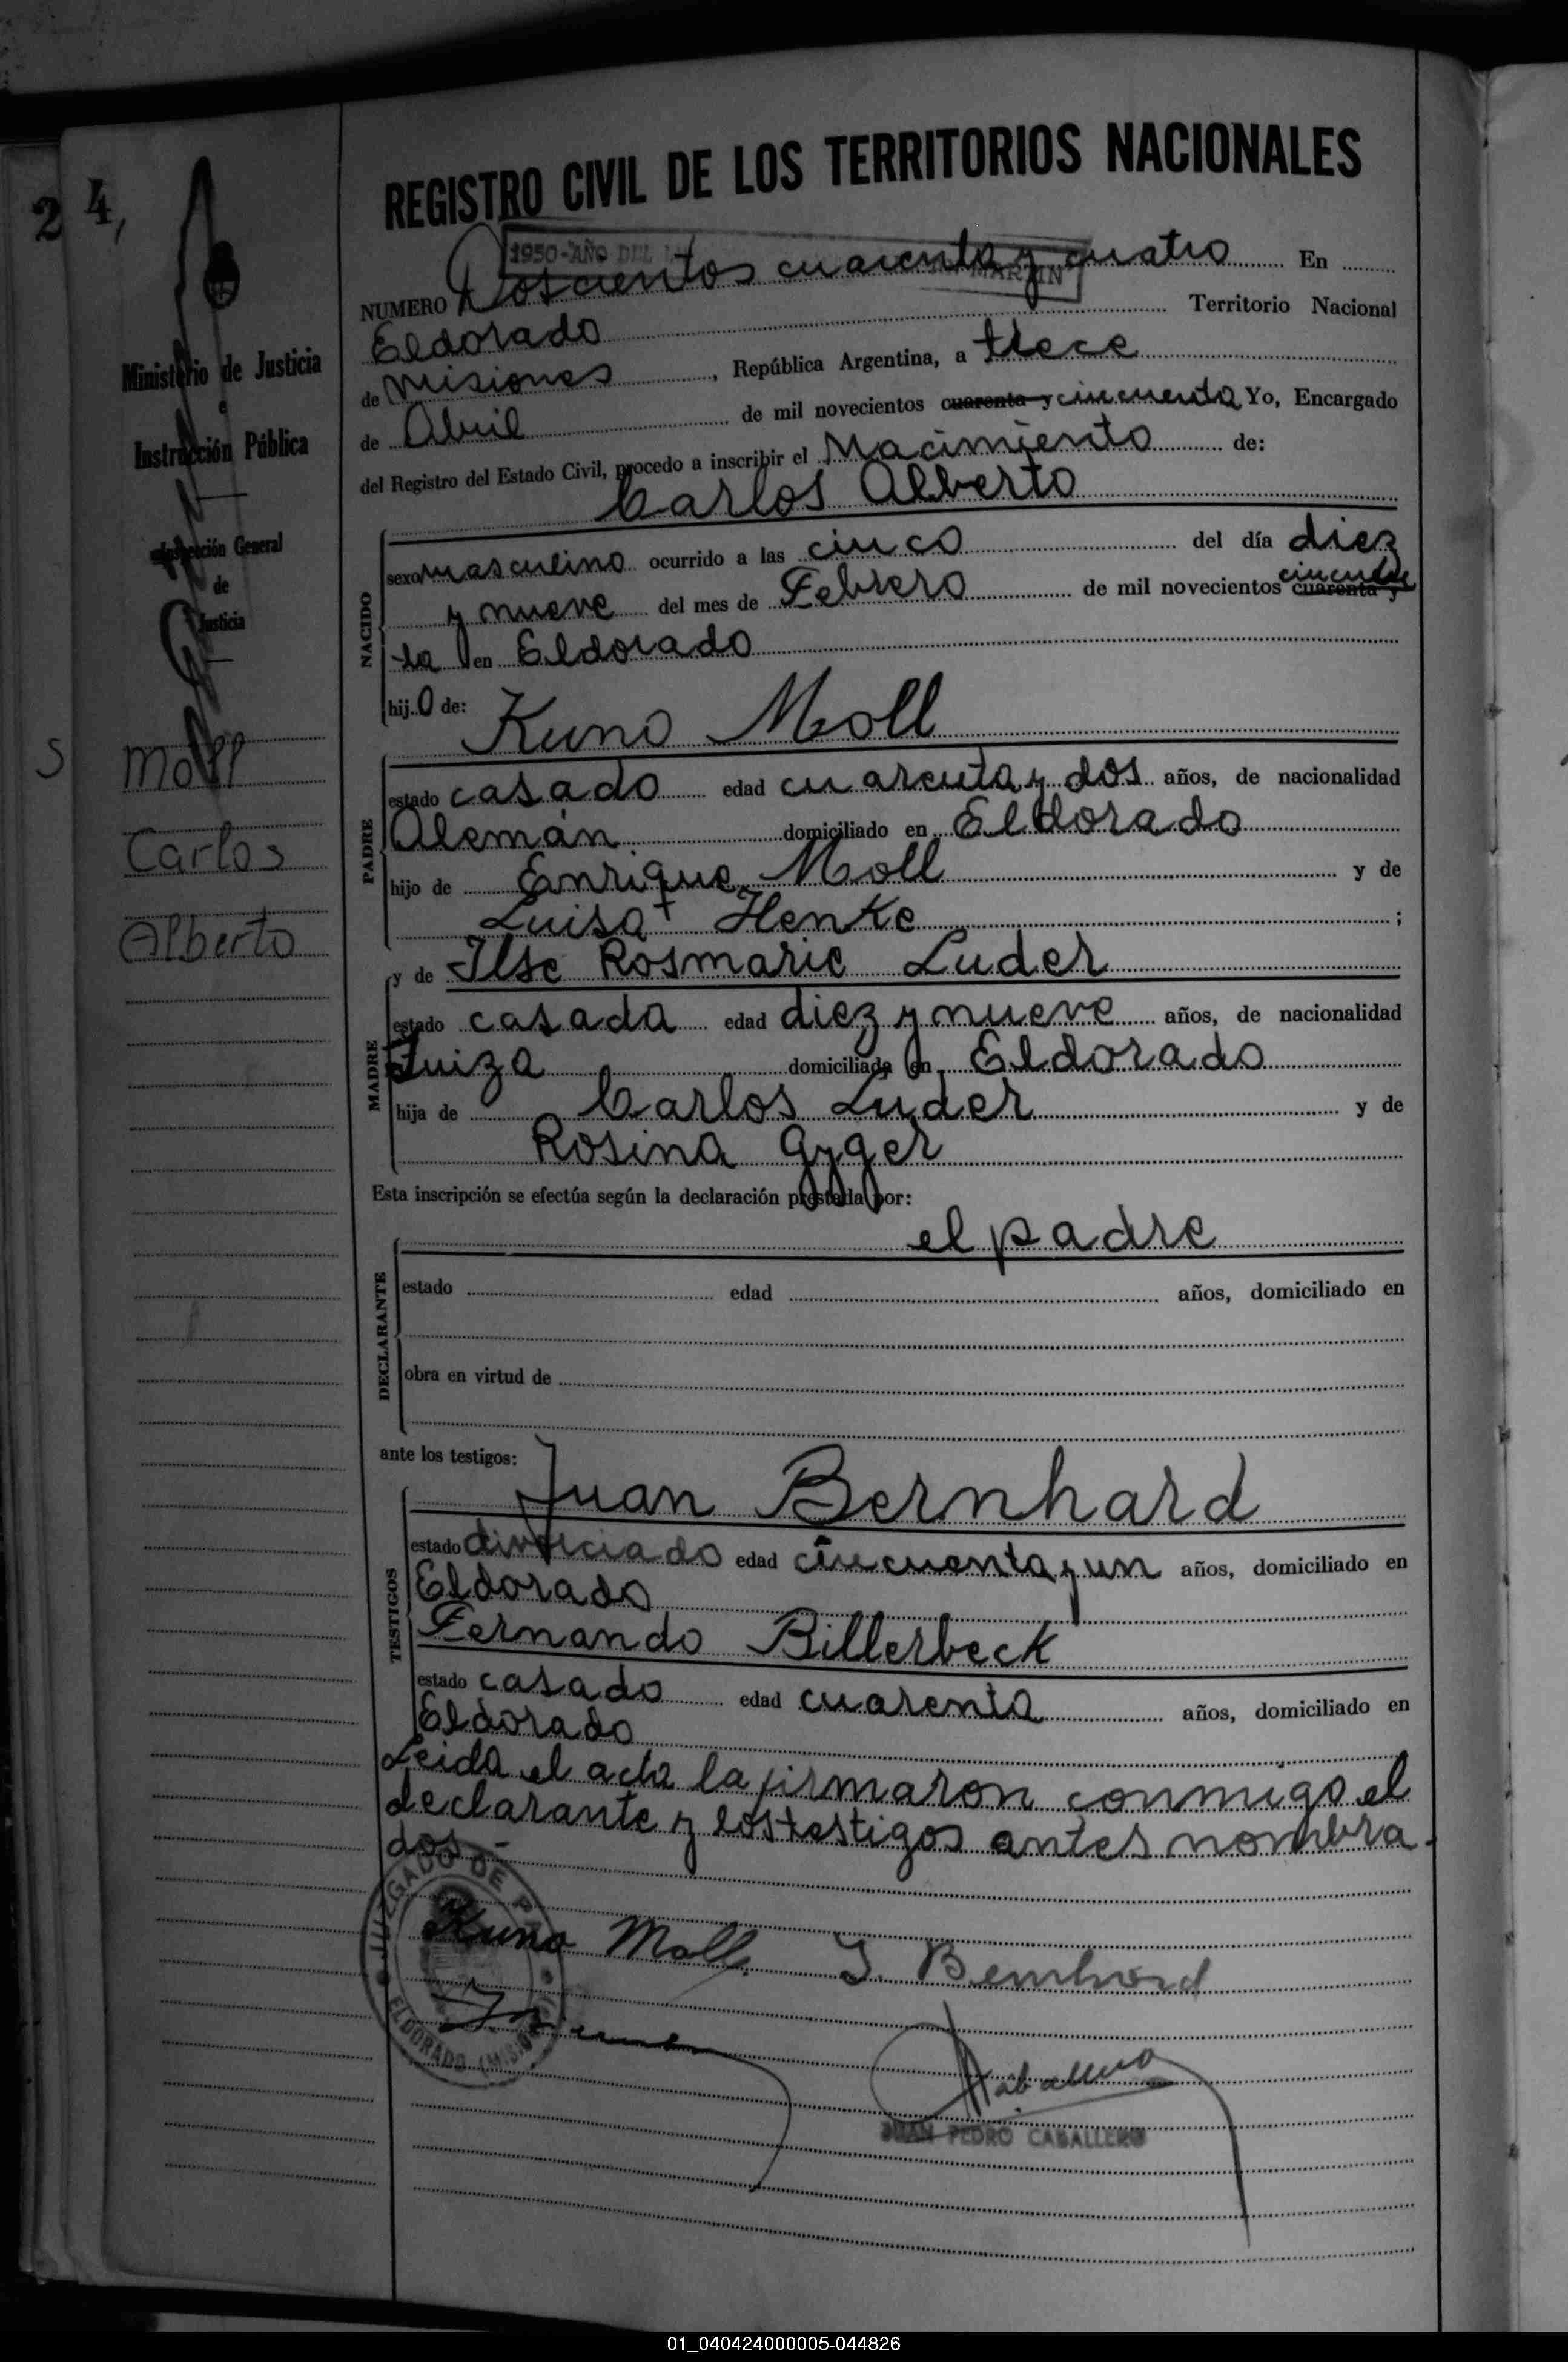 REGISTRO CIVIL DE LOS TERRITORIOS NACIONALES
24,
1950-AÑO DEL
MARTIN
NUMERO Doscientos cuarenta y cuatro En
Eldorado Territorio Nacional
de Misiones, República Argentina, a trece
de Abril de mil novecientos cuarenta y cincuenta Yo, Encargado
del Registro del Estado Civil, procedo a inscribir el Nacimiento de:
Carlos Alberto
Ministerio de Justicia
e
Instrucción Pública
Inspección General
de
Justicia
S Moll
Carlos
Alberto
NACIDO
sexo masculino ocurrido a las cinco del día diez
y nueve del mes de Febrero de mil novecientos cuarenta y cincuen
ta en Eldorado
hijo de: Kuno Moll
PADRE
estado casado edad cuarenta y dos años, de nacionalidad
Alemán domiciliado en Eldorado
hijo de Enrique Moll y de
Luisa Henke ;
y de Ilse Rosmarie Luder
MADRE
estado casada edad diez y nueve años, de nacionalidad
Suiza domiciliada en Eldorado
hija de Carlos Luder y de
Rosina Gyger
Esta inscripción se efectúa según la declaración prestada por:
el padre
DECLARANTE
estado edad años, domiciliado en
obra en virtud de
ante los testigos:
Juan Bernhard
TESTIGOS
estado divorciado edad cincuenta y un años, domiciliado en
Eldorado
Fernando Billerbeck
estado casado edad cuarenta años, domiciliado en
Eldorado
Leida el acta la firmaron conmigo el
declarante y los testigos antes nombra
dos -
JUZGADO DE P
ELDORADO (MISIO
Kuno Moll. J. Bernhard
Caballero
JUAN PEDRO CABALLERO
01_040424000005-044826